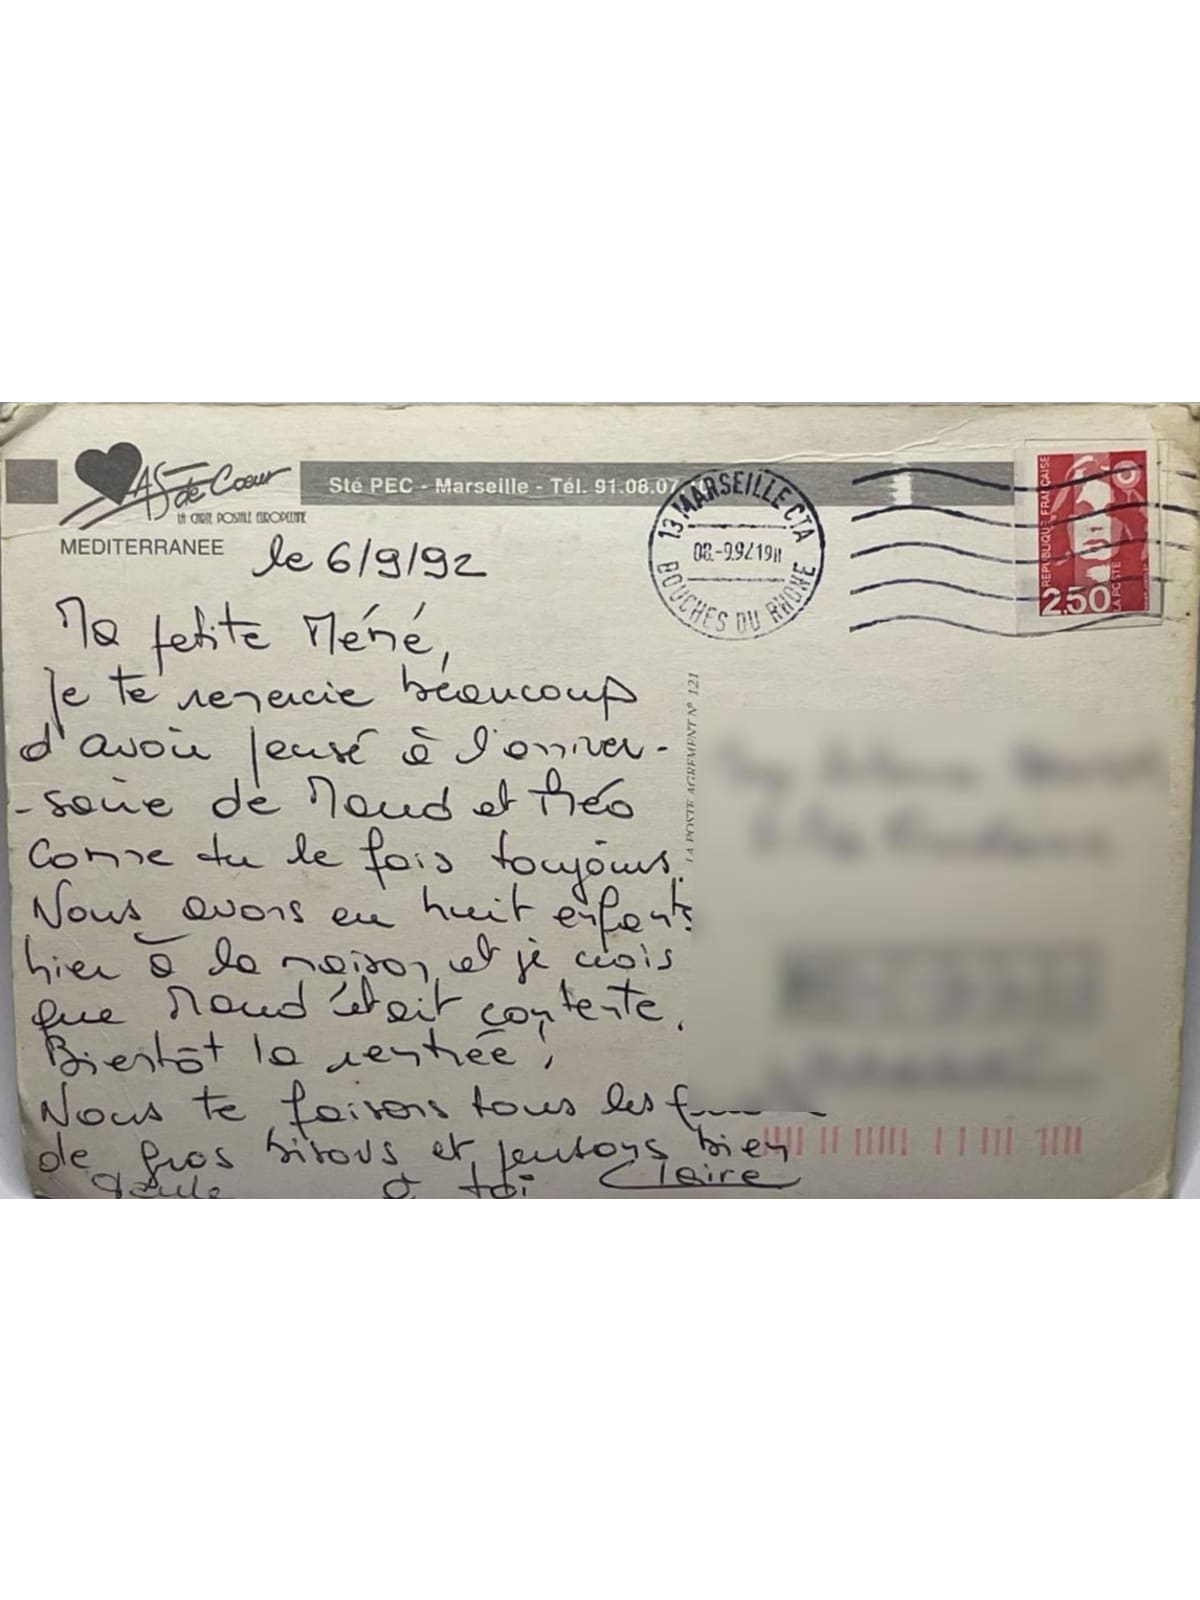 As de Cœur
LA CARTE POSTALE EUROPEENNE
MEDITERRANEE
Sté PEC - Marseille - Tél. 91.08.07
13 MARSEILLE CTA
08.-9.92 19H
BOUCHES DU RHONE
REPUBLIQUE FRANÇAISE
2,50
LA POSTE
le 6/9/92
Ma petite Mémé,
Je te remercie beaucoup
d'avoir pensé à l'anniver-
-saire de Maud et Théo
comme tu le fais toujours.
Nous avons eu huit enfants
hier à la maison, et je crois
que Maud était contente.
Bientôt la rentrée !
Nous te faisons tous les
de gros bisous et pensons bien
à toi Claire
LA POSTE AGREMENT N° 121